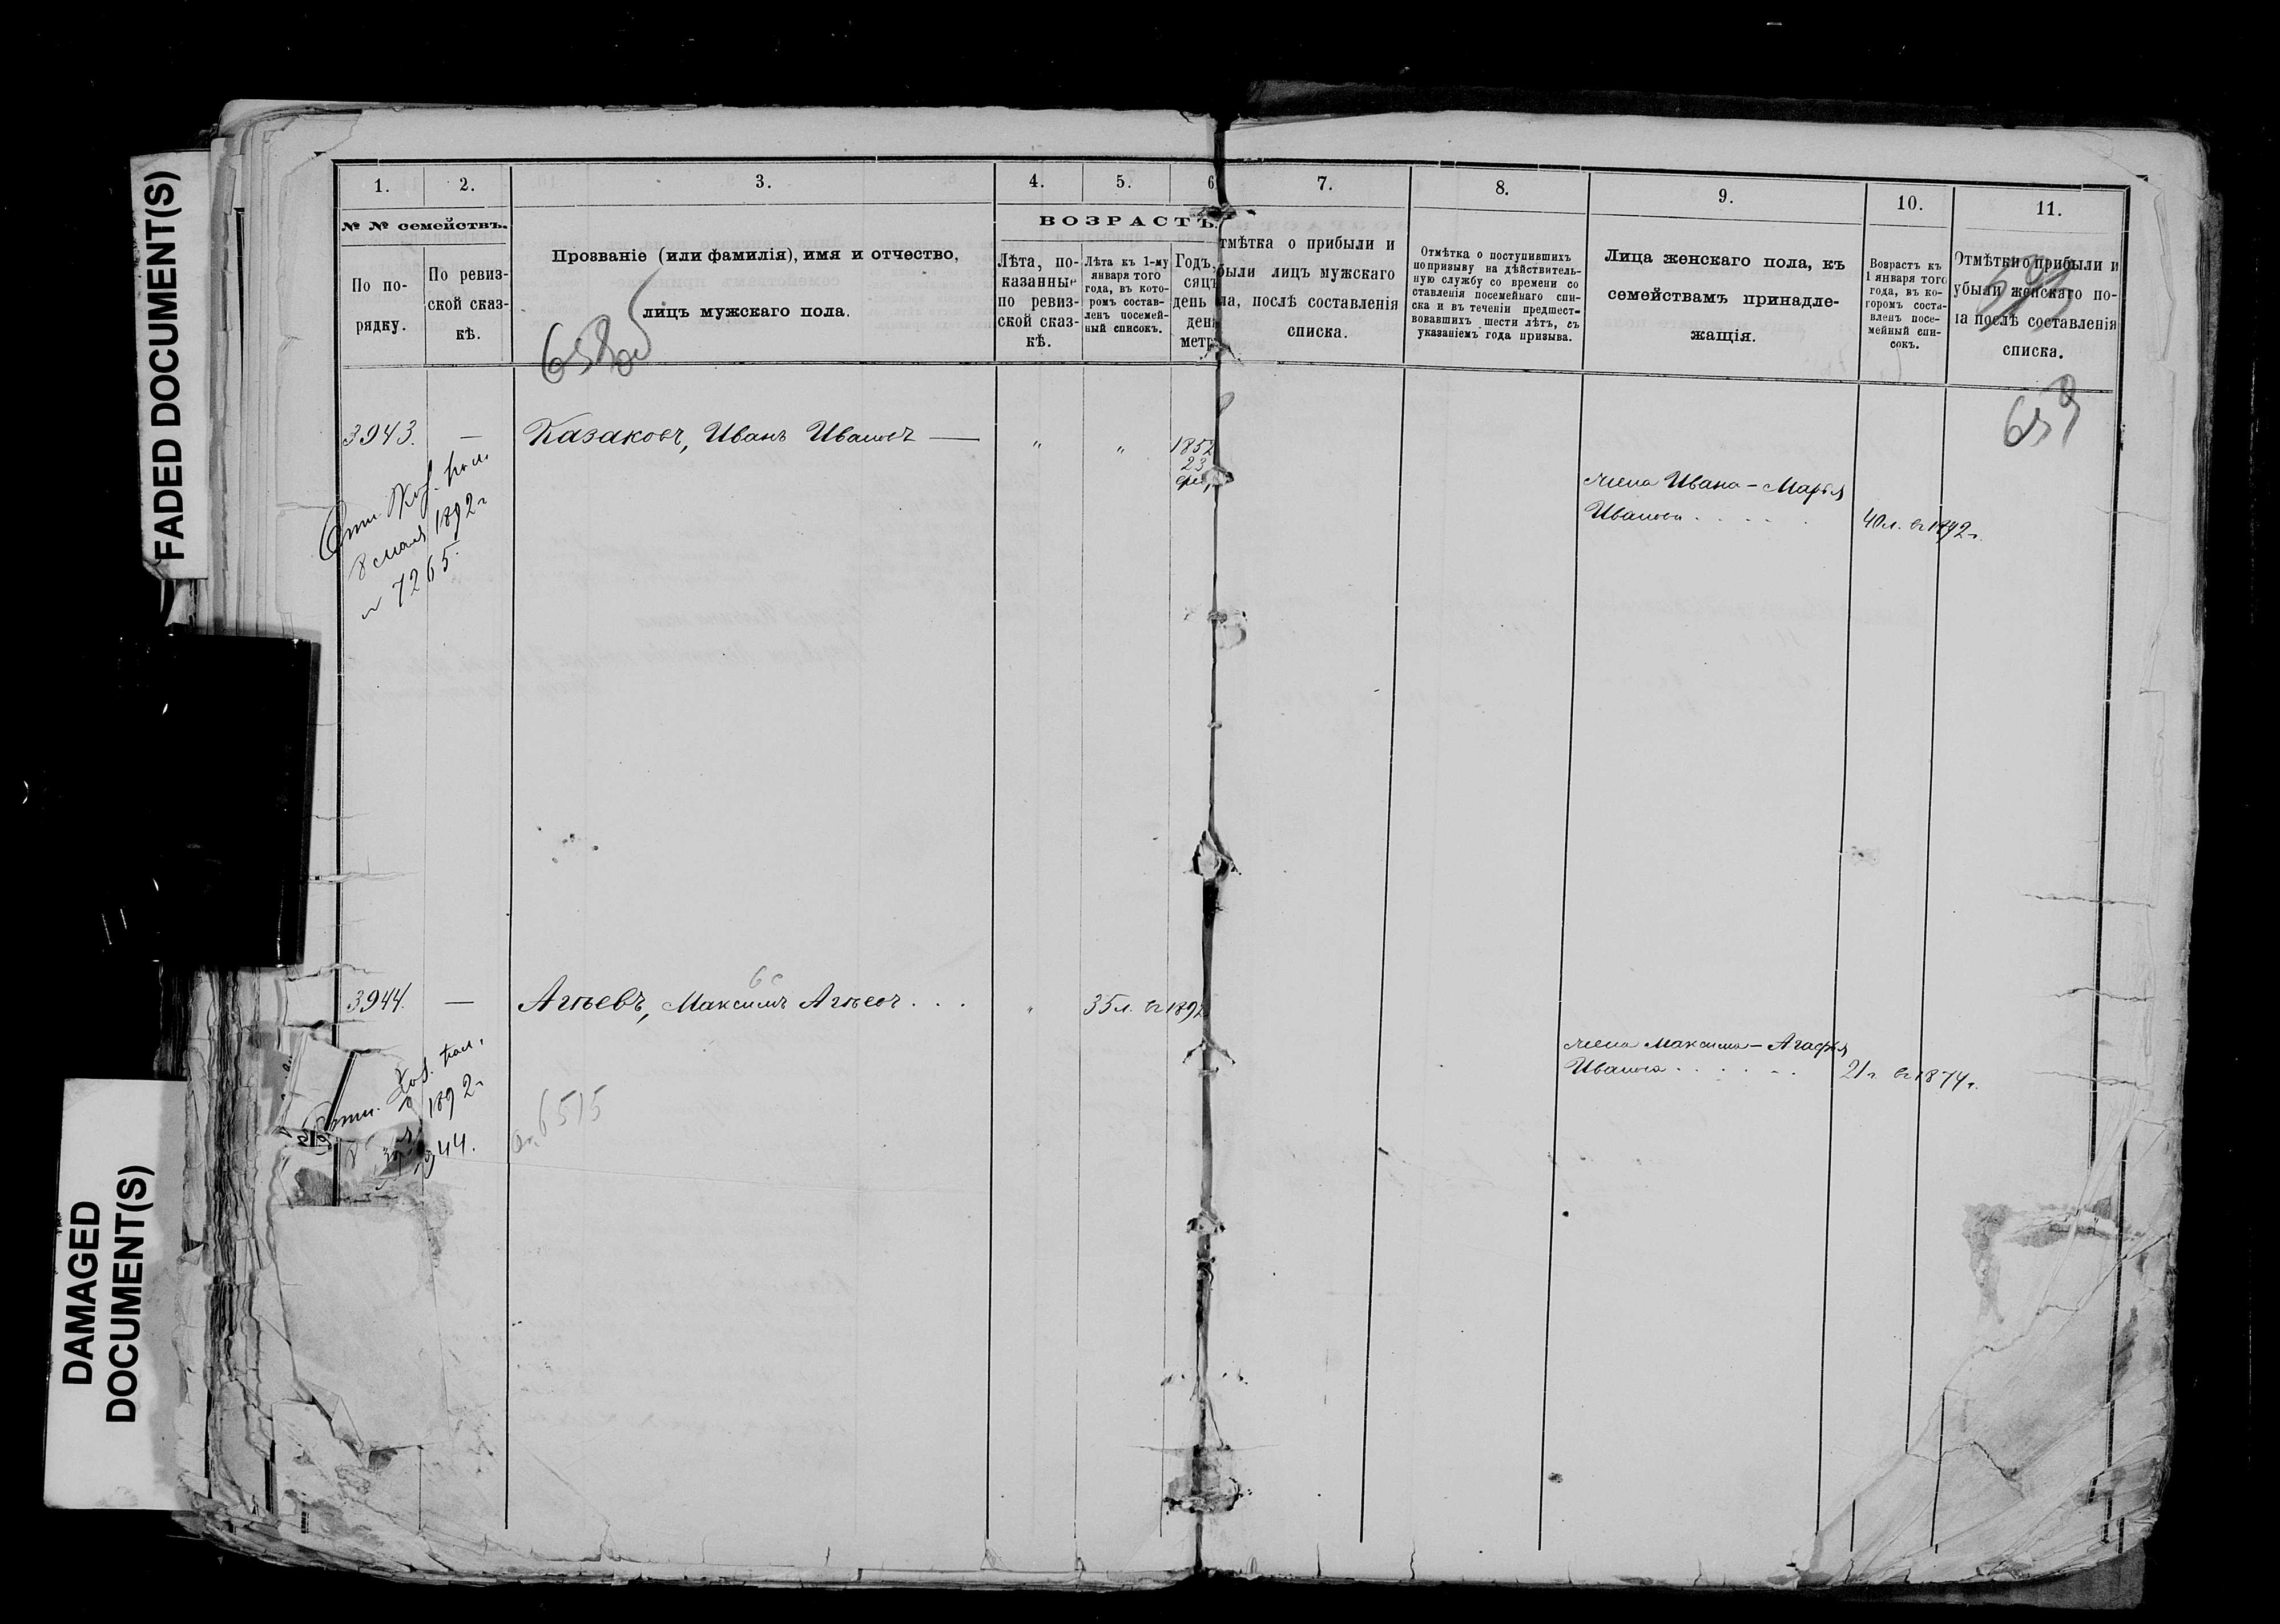 FADED DOCUMENT(S)
DAMAGED
DOCUMENT(S)
1.
2.
3.
4.
5.
6
7.
8.
9.
10.
11.
№ № семействъ.
По по-
рядку.
По ревиз-
ской сказ-
кѣ.
Прозваніе (или фамилія), имя и отчество,
лицъ мужскаго пола.
ВОЗРАСТЪ.
Лѣта, по-
казанные
по ревиз-
ской сказ-
кѣ.
Лѣта къ 1-му
января того
года, въ кото-
ромъ состав-
ленъ посемей-
ный списокъ.
Годъ,
сяцъ
день
ден
метр
тмѣтка о прибыли и
были лицъ мужскаго
ла, послѣ составленія
списка.
Отмѣтка о поступившихъ
по призыву на дѣйствитель-
ную службу со времени со
ставленія посемейнаго спи-
ска и въ теченіи предшест-
вовавшихъ шести лѣтъ, съ
указаніемъ года призыва.
Лица женскаго пола, къ
семействамъ принадле-
жащія.
Возрастъ къ
1 января того
года, въ ко-
торомъ соста-
вленъ посе-
мейный спи-
сокъ.
Отмѣтки о прибыли и
убыли женскаго по-
ла послѣ составленія
списка.
659
3943. —
Казаковъ, Иванъ Ивановъ —
" "
1852
23
фев
жена Ивана - Марья
Иванова . . . . .
40 л. въ 1892 г.
8 мая 1892 г
№ 7265.
3944. —
Агѣевъ, Максимъ Агѣевъ . . .
"
35 л. въ 1892
жена Максима - Агафья
Иванова . . . . . .
21 г. въ 1874 г.
1892 г
944.
6515